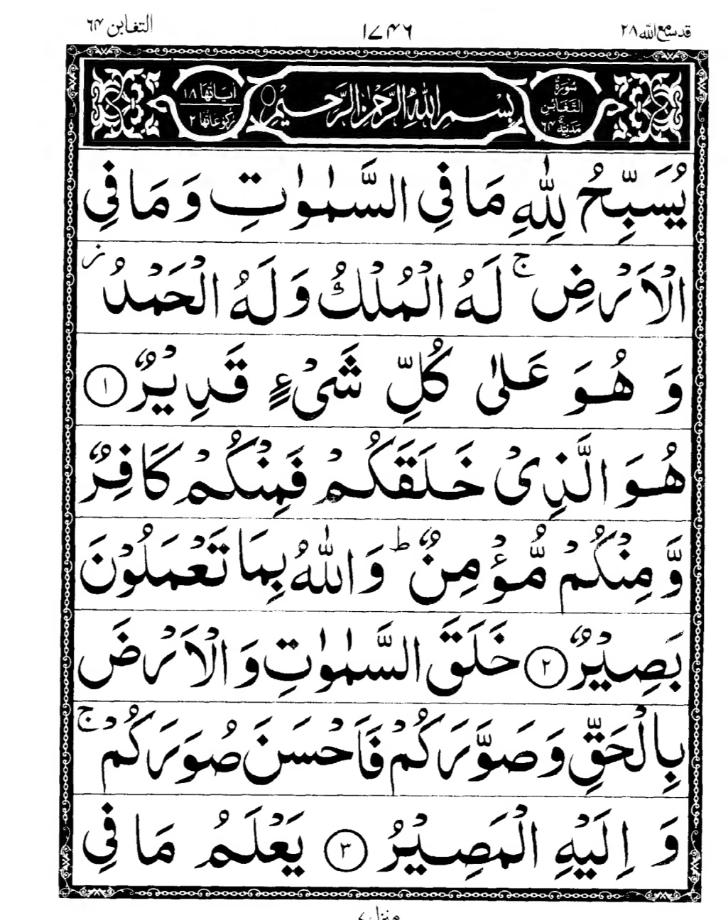 قد سمع الله ٢٨
١٧٤٦
التغابن ٦٤
سُوْرَةُ التَّغَابُنِ مَدَنِيَّةٌ ٦٤
بِسْمِ اللهِ الرَّحْمٰنِ الرَّحِيْمِ
اٰيَاتُهَا ١٨
رُكُوْعَاتُهَا ٢
يُسَبِّحُ لِلّٰهِ مَا فِي السَّمٰوٰتِ وَ مَا فِي
الْاَرْضِ ۚ لَهُ الْمُلْكُ وَ لَهُ الْحَمْدُ ز
وَ هُوَ عَلٰى كُلِّ شَيْءٍ قَدِيْرٌ ①
هُوَ الَّذِيْ خَلَقَكُمْ فَمِنْكُمْ كَافِرٌ
وَّ مِنْكُمْ مُّؤْمِنٌ ؕ وَ اللّٰهُ بِمَا تَعْمَلُوْنَ
بَصِيْرٌ ② خَلَقَ السَّمٰوٰتِ وَ الْاَرْضَ
بِالْحَقِّ وَ صَوَّرَكُمْ فَاَحْسَنَ صُوَرَكُمْ ۚ
وَ اِلَيْهِ الْمَصِيْرُ ③ يَعْلَمُ مَا فِي
منزل ٧